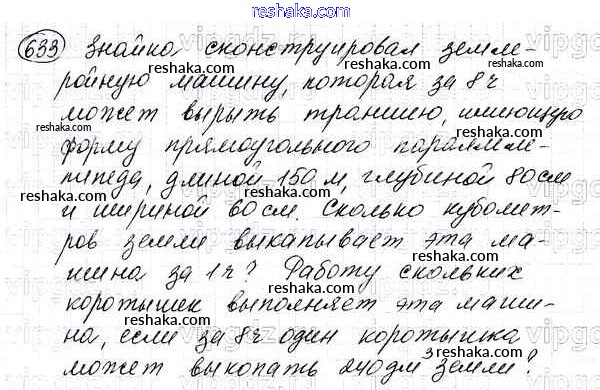 reshaka.com
633 Знайка сконструировал земле-
ройную машину, которая за 8 ч
может вырыть траншею, имеющую
форму прямоугольного параллеле-
пипеда, длиной 150 м, глубиной 80 см
и шириной 60 см. Сколько кубомет-
ров земли выкапывает эта ма-
шина за 1 ч? Работу скольких
коротышек выполняет эта маши-
на, если за 8 ч один коротышка
может выкопать 240 дм³ земли?